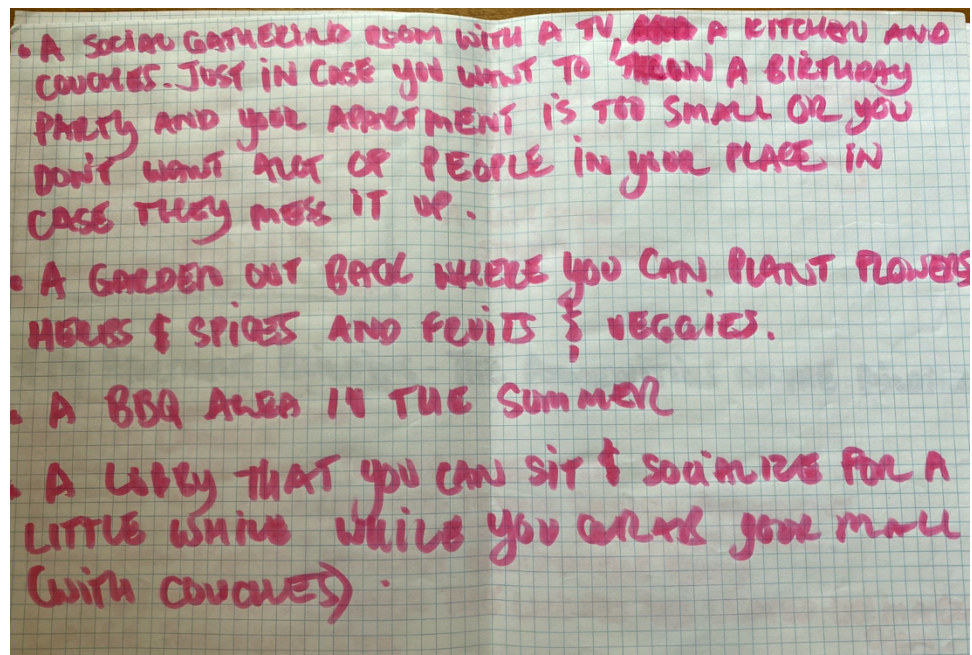 • A SOCIAL GATHERING ROOM WITH A TV, A KITCHEN AND
COUCHES. JUST IN CASE YOU WANT TO THROW A BIRTHDAY
PARTY AND YOUR APARTMENT IS TOO SMALL OR YOU
DON'T WANT ALOT OF PEOPLE IN YOUR PLACE IN
CASE THEY MESS IT UP.
• A GARDEN OUT BACK WHERE YOU CAN PLANT FLOWERS
HERBS & SPICES AND FRUITS & VEGGIES.
• A BBQ AREA IN THE SUMMER
• A LOBBY THAT YOU CAN SIT & SOCIALIZE FOR A
LITTLE WHILE WHILE YOU GRAB YOUR MAIL
(WITH COUCHES).